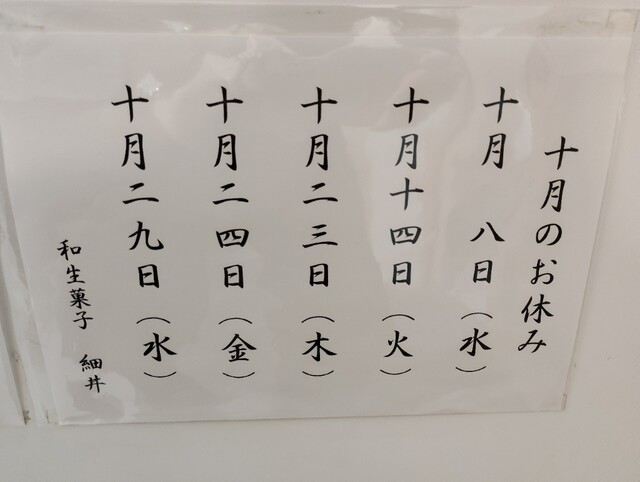 十月のお休み
十月 八日(水)
十月十四日(火)
十月二三日(木)
十月二四日(金)
十月二九日(水)
和生菓子 細井